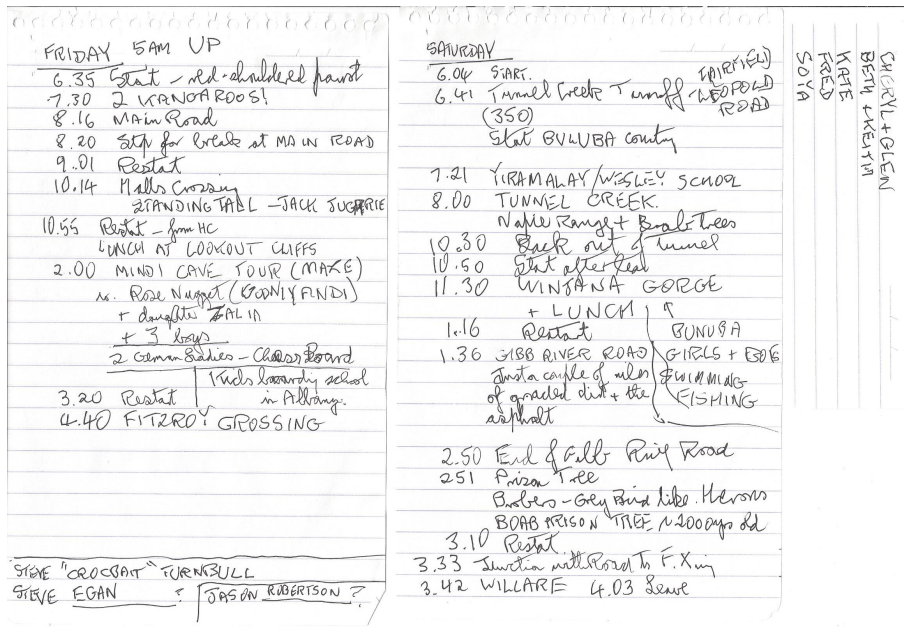 FRIDAY 5AM UP
6.35 Start – red-shouldered parrot
7.30 2 KANGAROOS!
8.16 Main Road
8.20 Stop for break at MAIN ROAD
9.01 Restart
10.14 Halls Crossing
STANDING TALL – JACK
10.55 Restart – from HC
LUNCH AT LOOKOUT CLIFFS
2.00 MINDI CAVE TOUR (MAZE)
Rose Nugget (GOONIYANDI)
+ daughter ZALIA
+ 3 boys
2 German Ladies – Chess Board
1 kids boarding school
in Albany.
3.20 Restart
4.40 FITZROY CROSSING
STEVE "CROCBAIT" TURNBULL
STEVE EGAN ?
JASON ROBERTSON ?
SATURDAY
6.04 START.
6.41 Tunnel Creek Turnoff – FAIRFIELD
LEOPOLD
ROAD
(350)
Start country
7.21 YIRAMALAY/WESLEY SCHOOL
8.00 TUNNEL CREEK.
Napier Range + Boab Trees
10.30 Back out of tunnel
10.50 Start after
11.30 WINJANA GORGE
+ LUNCH
1.16 Restart
BUNUBA
GIRLS + BOYS
SWIMMING
FISHING
1.36 GIBB RIVER ROAD
Just a couple of miles
of graded dirt + the
asphalt
2.50 End of Gibb River Road
251 Prison Tree
Brobers – Grey Bird like Herons
BOAB PRISON TREE ~ 2000 yrs old
3.10 Restart
3.33 Junction with Road to F. Xing
3.42 WILLARE 4.03 Leave
CHERYL + GLEN
BETH + KEITH
KATE
FRED
SOYA